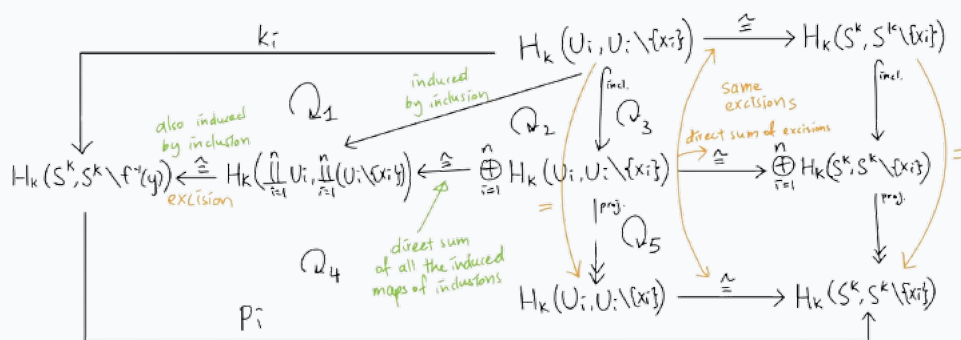 kᵢ
Hₖ(Uᵢ, Uᵢ\{xᵢ}) ≅ Hₖ(Sᵏ, Sᵏ\{xᵢ})
induced by inclusion
incl.
same excisions
incl.
↻₁ ↻₂ ↻₃
also induced by inclusion
direct sum of excisions
Hₖ(Sᵏ, Sᵏ\f⁻¹(y)) ≅ Hₖ(∐ⁿᵢ₌₁ Uᵢ, ∐ⁿᵢ₌₁(Uᵢ\{xᵢ})) ≅ ⊕ⁿᵢ₌₁ Hₖ(Uᵢ, Uᵢ\{xᵢ}) ≅ ⊕ⁿᵢ₌₁ Hₖ(Sᵏ, Sᵏ\{xᵢ}) =
excision
= proj.
proj.
↻₄
direct sum
of all the induced
maps of inclusions
↻₅
Hₖ(Uᵢ, Uᵢ\{xᵢ}) ≅ Hₖ(Sᵏ, Sᵏ\{xᵢ})
pᵢ